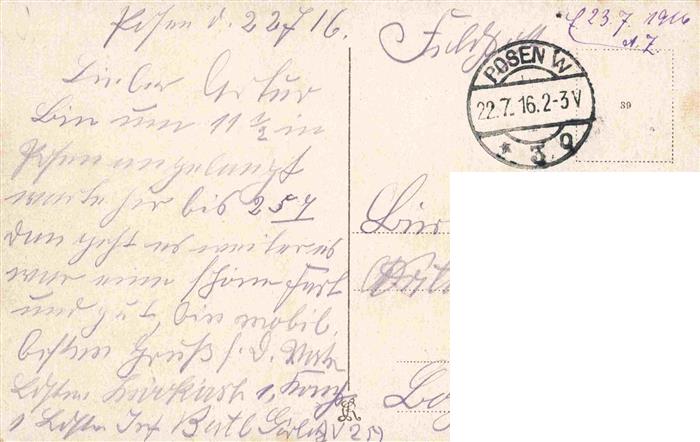 Posen d. 22 7 16.
Lieber Artur
Bin um 11 ½ in
Posen angelangt
warte hir bis 2 5 7
dan geht es weiter es
war eine schöne Fart
und gut, bin mobil.
besten Gruß s. D.
1 Ldstm Inf Batl Görlitz V 29
Feldpost
E 23. 7. 1916
A. Z.
POSEN W
22.7. 16. 2-3 V
* 3 o
39